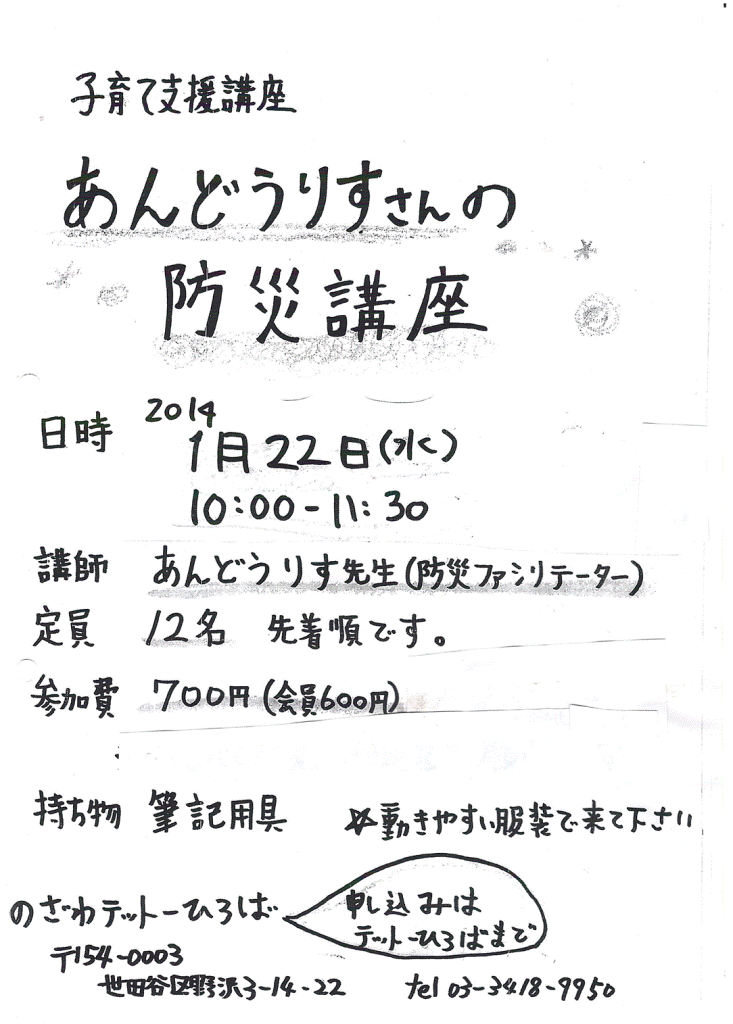 子育て支援講座
あんどうりすさんの
防災講座
日時 2014
1月22日(水)
10:00-11:30
講師 あんどうりす先生(防災ファシリテーター)
定員 12名 先着順です。
参加費 700円(会員600円)
持ち物 筆記用具 ☆動きやすい服装で来て下さい
のざわテットーひろば
申し込みは
テットーひろばまで
〒154-0003
世田谷区野沢3-14-22 tel 03-3418-9950